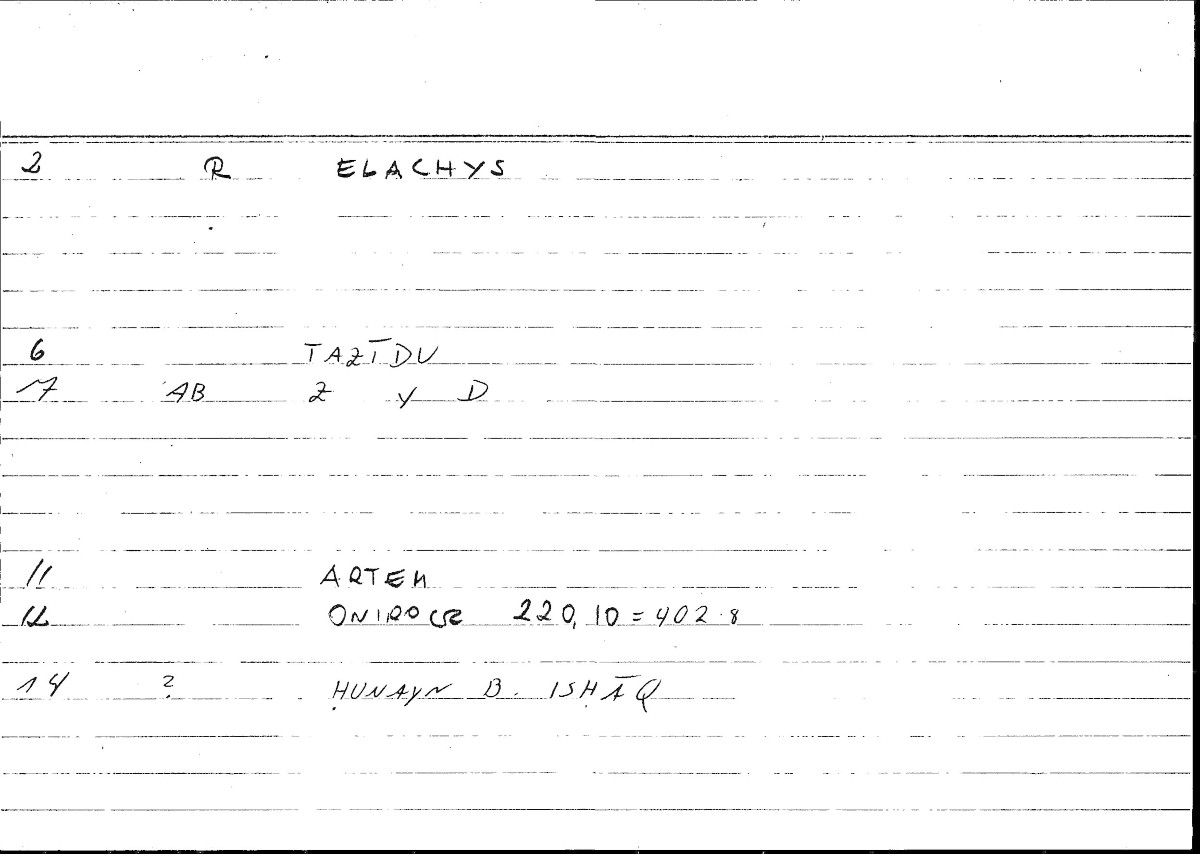 2 R ELACHYS
6 TAZĪDU
7 AB Z Y D
11 ARTEM
12 ONIROCR 220,10=402.8
14 ? ḤUNAYN B. ISḤĀQ